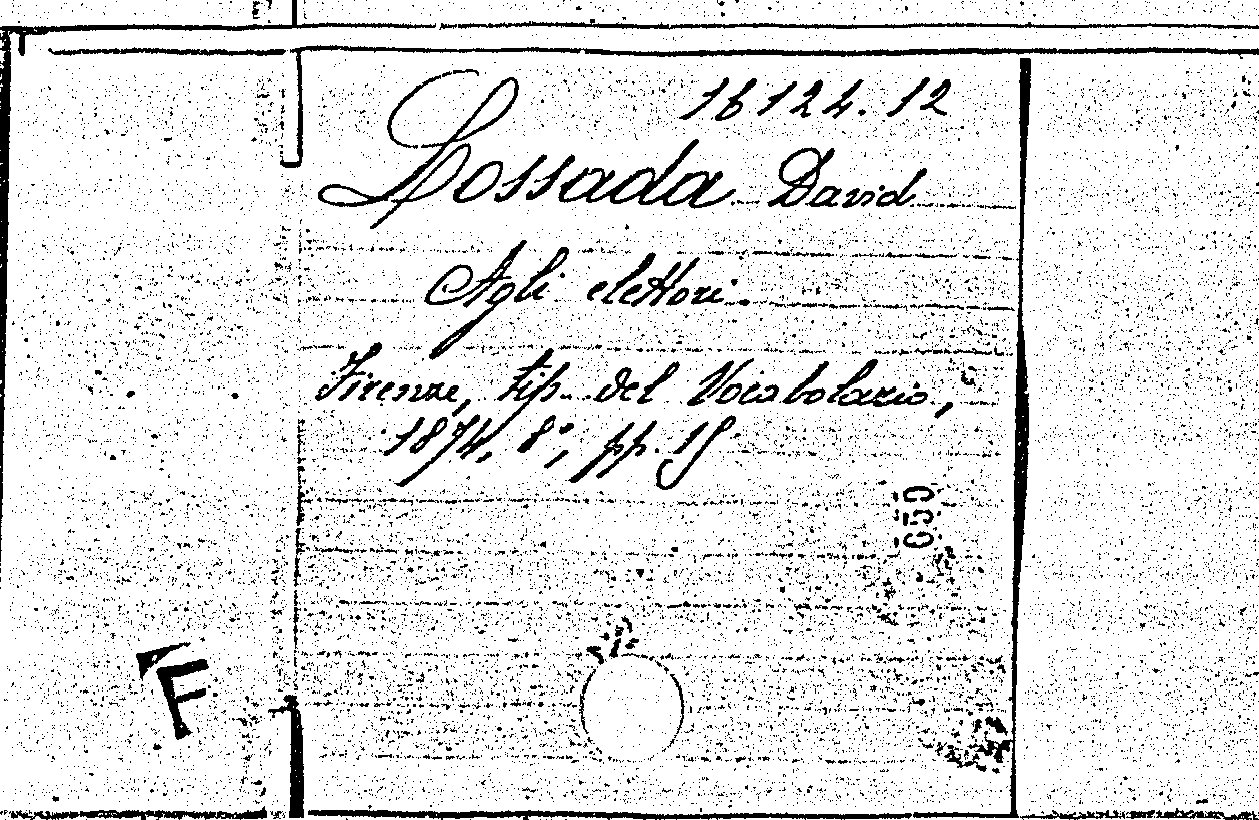 16124.12
Lossada David
Agli elettori.
Firenze, tip. del Vocabolario,
1874, 8°, pp. 15
650
F